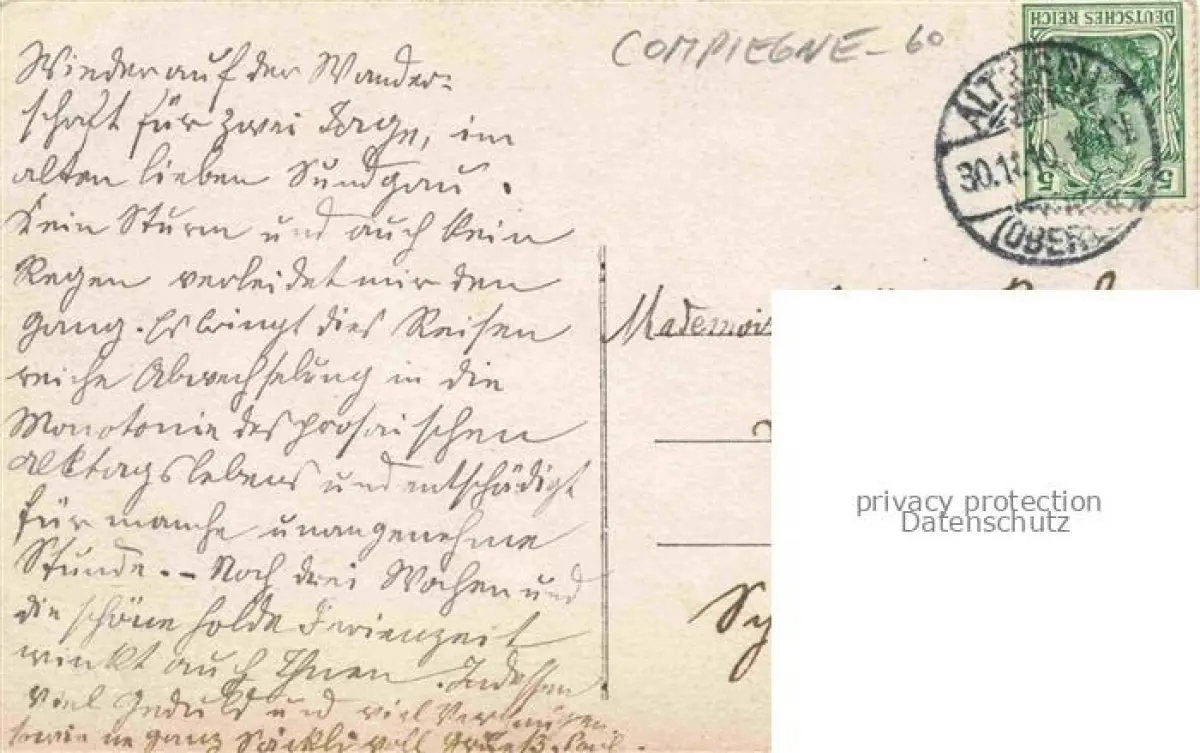 COMPIEGNE - 60
DEUTSCHES REICH
5 5
ALTKIRCH
30.11.10
(OBER
Wieder auf der Wander-
schaft für zwei Tage, im
alten lieben Sundgau.
Kein Sturm und auch kein
Regen verleidet mir den
Gang. Es bringt dies Reisen
reiche Abwechslung in die
Monotonie des prosaischen
Alltagslebens und entschädigt
für manche unangenehme
Stunde. - Noch drei Wochen und
die schöne holde Ferienzeit
winkt auch Ihnen. Indessen
viel Geduld und viel Vergnügen
sowie ne ganz Säckli voll Grüeß. Paul.
Mademois
Sy
privacy protection
Datenschutz